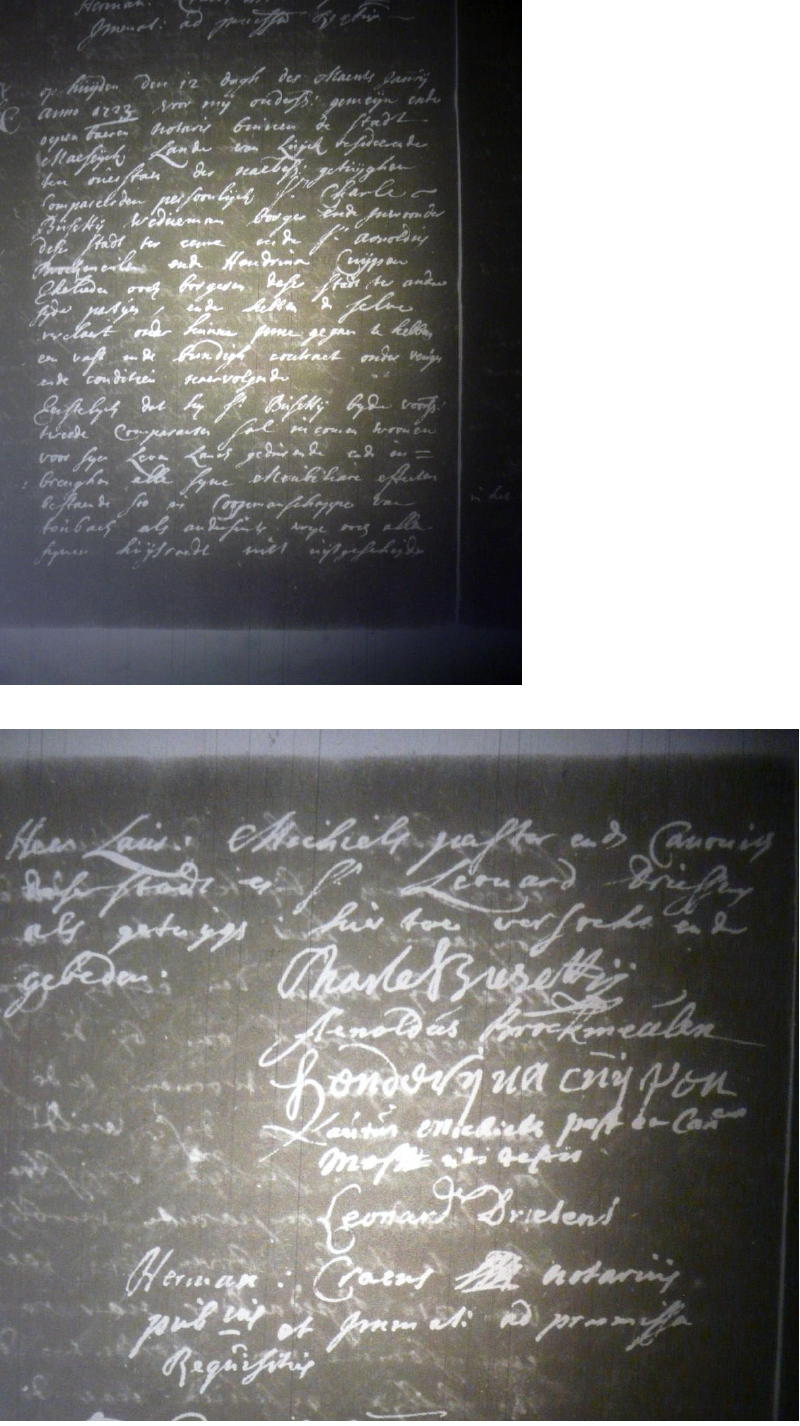 Herman:
Immat: ad
op huijden den 12 dagh der Maent
anno 1723 voor mij onders: gemeijn ende
openbaeren notaris binnen de stadt
Maeseijck Lande van Luijck residerende
ten overstaen der naerbes: getuijghen
Compareerden persoonlijck Sr Charle
Busettij wedueman borger ende inwoonder
deser stadt ter eenre ende Sr Arnoldus
Brockmeulen ende Hendrina Cuijpen
Eheluden oock borgeren deser stadt ter andere
sijde partijen, ende hebben de selve
verclaert onder hunne gegaen te hebben
en vast ende bundigh contract onder
ende conditien naervolgende
Eerstelijck dat hij Sr Busettij bij de voors:
tweede Comparanten sal incomen woonen
voor sijn Leven Lanck gedurende ende in=
brenghen alle sijne Mobiliaire effecten
bestaende soo in Coopmanschappe van
touback als andersints oock alle
sijnen huijsraedt niet uijtgescheijden
Heer Laur: Michiels pastor ende Canonick
deser stadt en Sr Leonard Driessens
als getuijge hier toe versocht ende
gebeden:
Charle Busettij
Arnoldus Brockmeulen
Henderijna cuijpen
Laurens Michiels past en Can
testis
Leonard Drielens
Herman: Craens notarius
publicus et Immat: ad praemissa
Requisitus